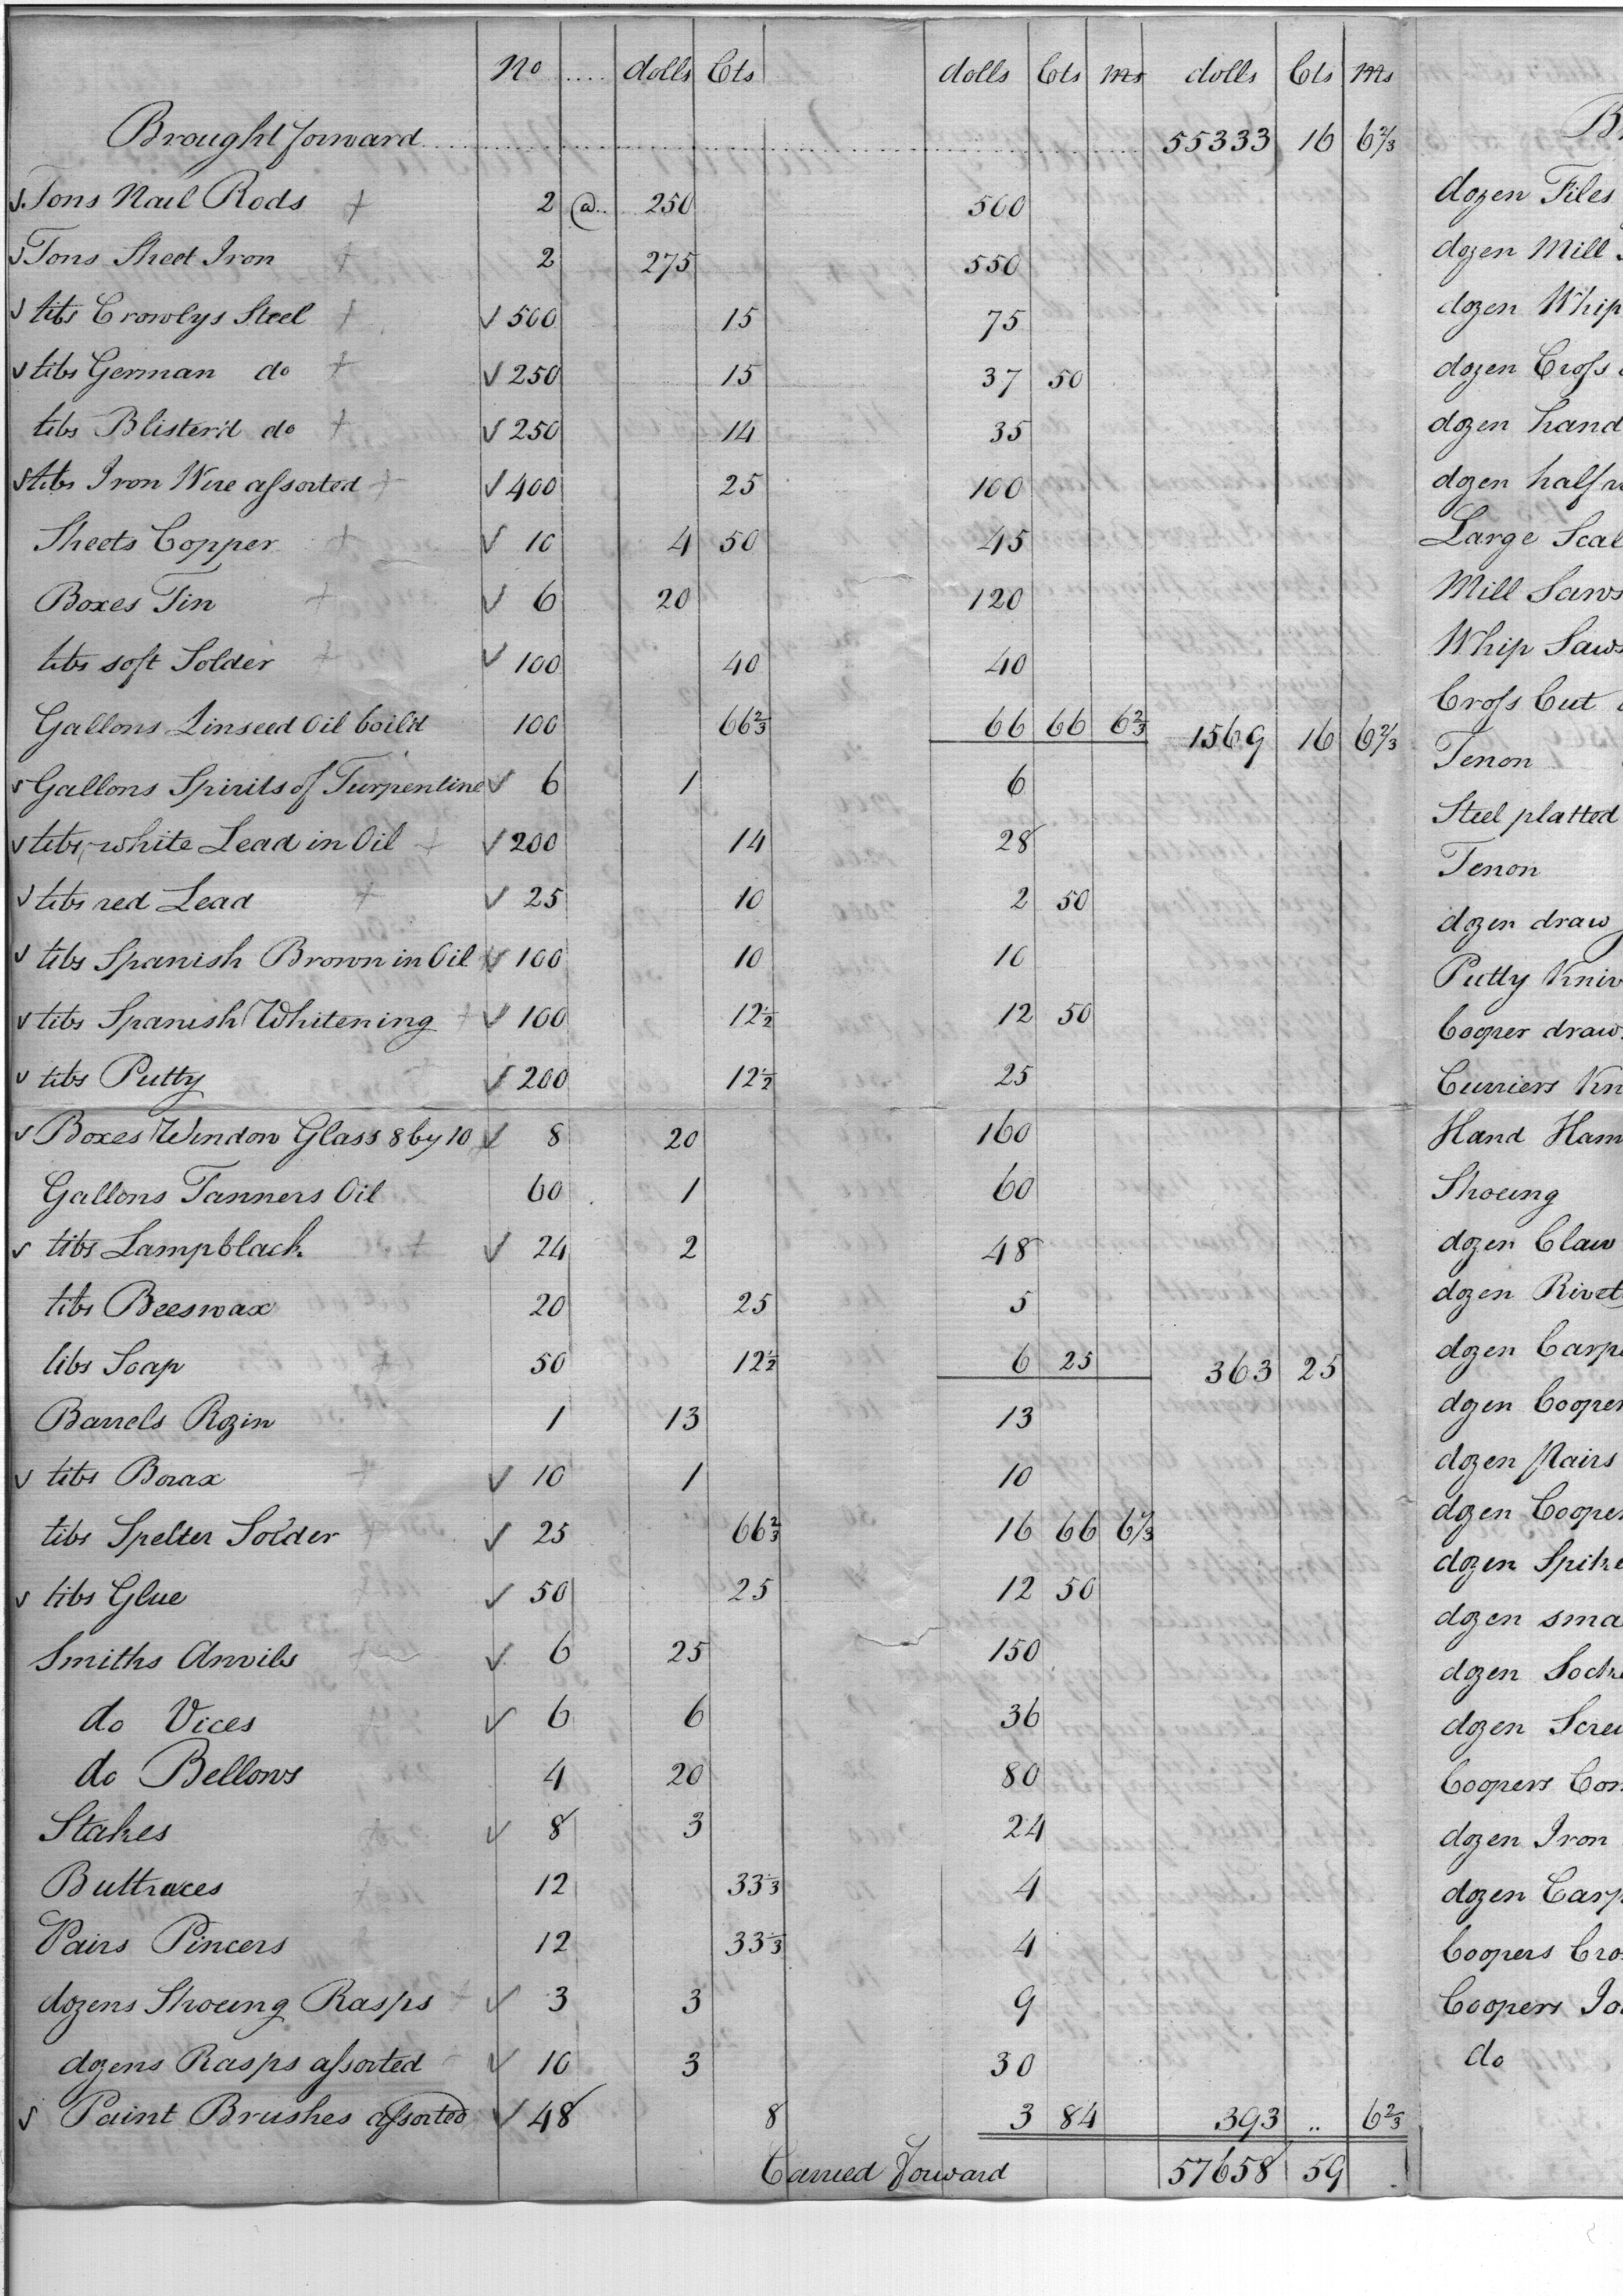 No .... dolls Cts dolls Cts ms dolls Cts Ms
Brought forward 55333 16 6 2/3
Tons Nail Rods 2 @.. 250 500
Tons Sheet Iron 2 275 550
lbs Crowlys Steel 500 15 75
lbs German do 250 15 37 50
lbs Blister'd do 250 14 35
lbs Iron Wire assorted 400 25 100
Sheets Copper 10 4 50 45
Boxes Tin 6 20 120
lbs soft Solder 100 40 40
Gallons Linseed Oil boild 100 66 2/3 66 66 6 2/3 1569 16 6 2/3
Gallons Spirits of Turpentine 6 1 6
lbs white Lead in Oil 200 14 28
lbs red Lead 25 10 2 50
lbs Spanish Brown in Oil 100 10 10
lbs Spanish Whitening 100 12 1/2 12 50
lbs Putty 200 12 1/2 25
Boxes Window Glass 8 by 10 8 20 160
Gallons Tanners Oil 60 1 60
lbs Lampblack 24 2 48
lbs Beeswax 20 25 5
lbs Soap 50 12 1/2 6 25 363 25
Barrels Rozin 1 13 13
lbs Borax 10 1 10
lbs Spelter Solder 25 66 2/3 16 66 6 2/3
lbs Glue 50 25 12 50
Smiths Anvils 6 25 150
do Vices 6 6 36
do Bellows 4 20 80
Stakes 8 3 24
Buttraces 12 33 1/3 4
Pairs Pincers 12 33 1/3 4
dozens Shoeing Rasps 3 3 9
dozens Rasps assorted 10 3 30
Paint Brushes assorted 48 8 3 84 393 .. 6 2/3
Carried Forward 57658 59
B
dozen Files
dozen Mill
dozen Whip
dozen Cross
dozen hand
dozen half
Large Scal
Mill Saws
Whip Saws
Cross Cut
Tenon
Steel platted
Tenon
dozen draw
Putty Kniv
Cooper draw
Curriers Kn
Hand Ham
Shoeing
dozen Claw
dozen Rivet
dozen Carp
dozen Cooper
dozen Pairs
dozen Cooper
dozen Spike
dozen sma
dozen Sock
dozen Scre
Coopers Com
dozen Iron
dozen Carp
Coopers Cro
Coopers Jo
do